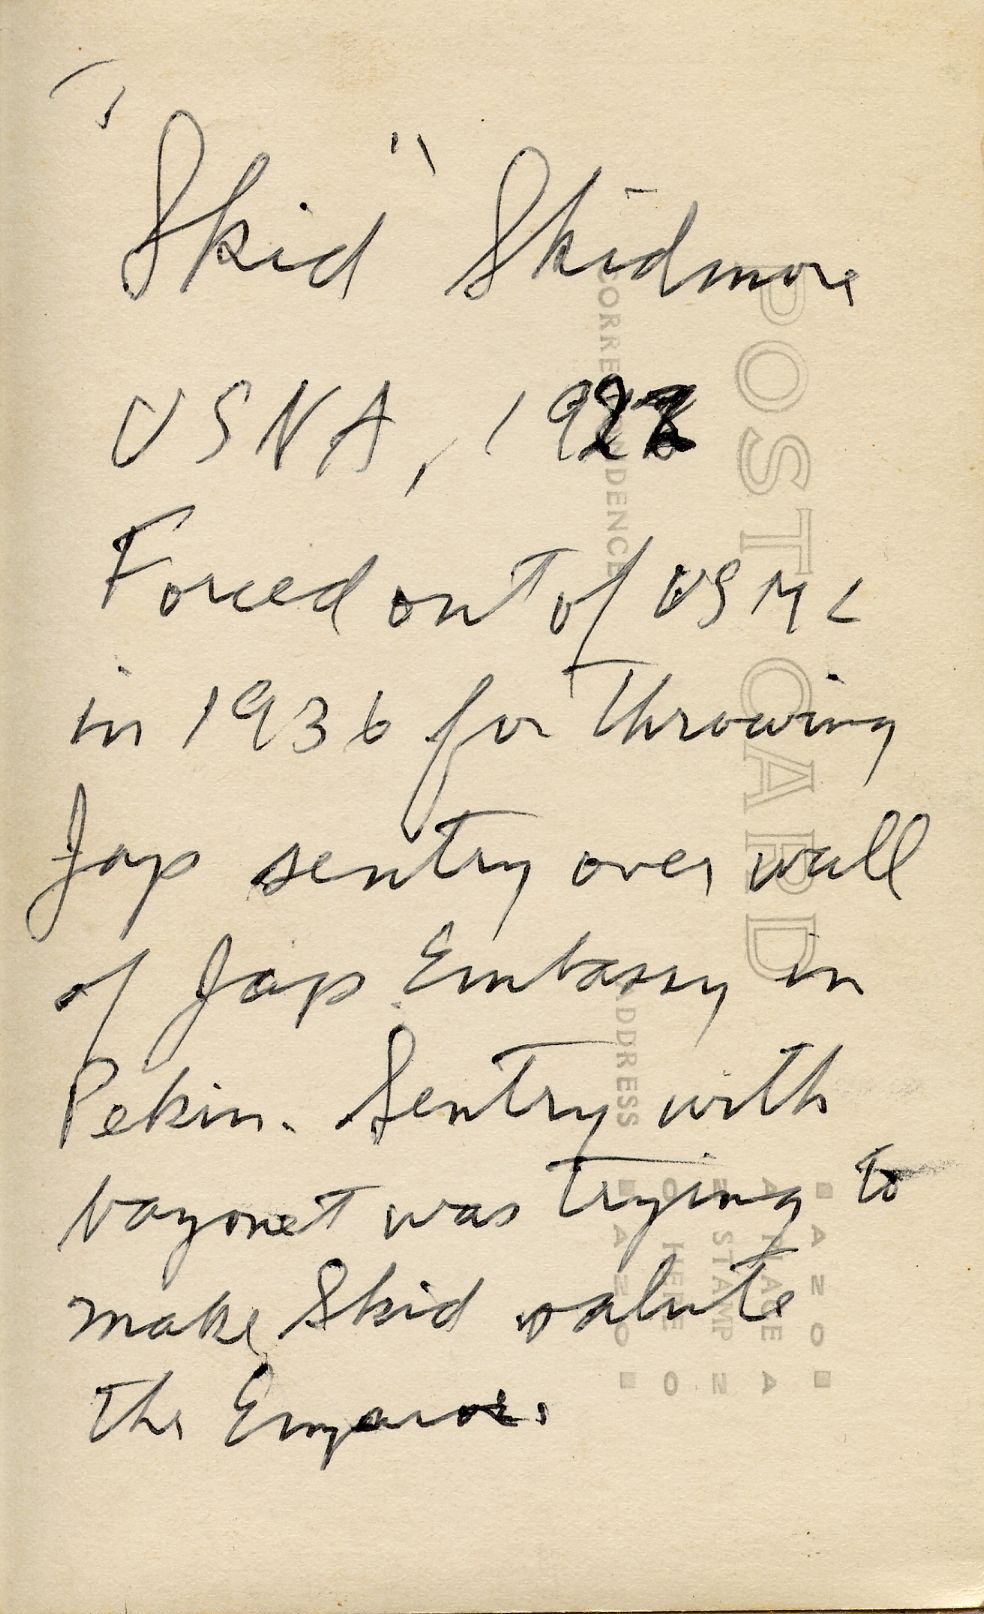 "Skid" Skidmore
USNA, 1922
Forced out of USMC
in 1936 for throwing
Jap sentry over wall
of Jap Embassy in
Pekin. Sentry with
bayonet was trying to
make Skid salute
the Emperor.
POST CARD
CORRESPONDENCE
ADDRESS
AZO
PLACE
STAMP
HERE
AZO